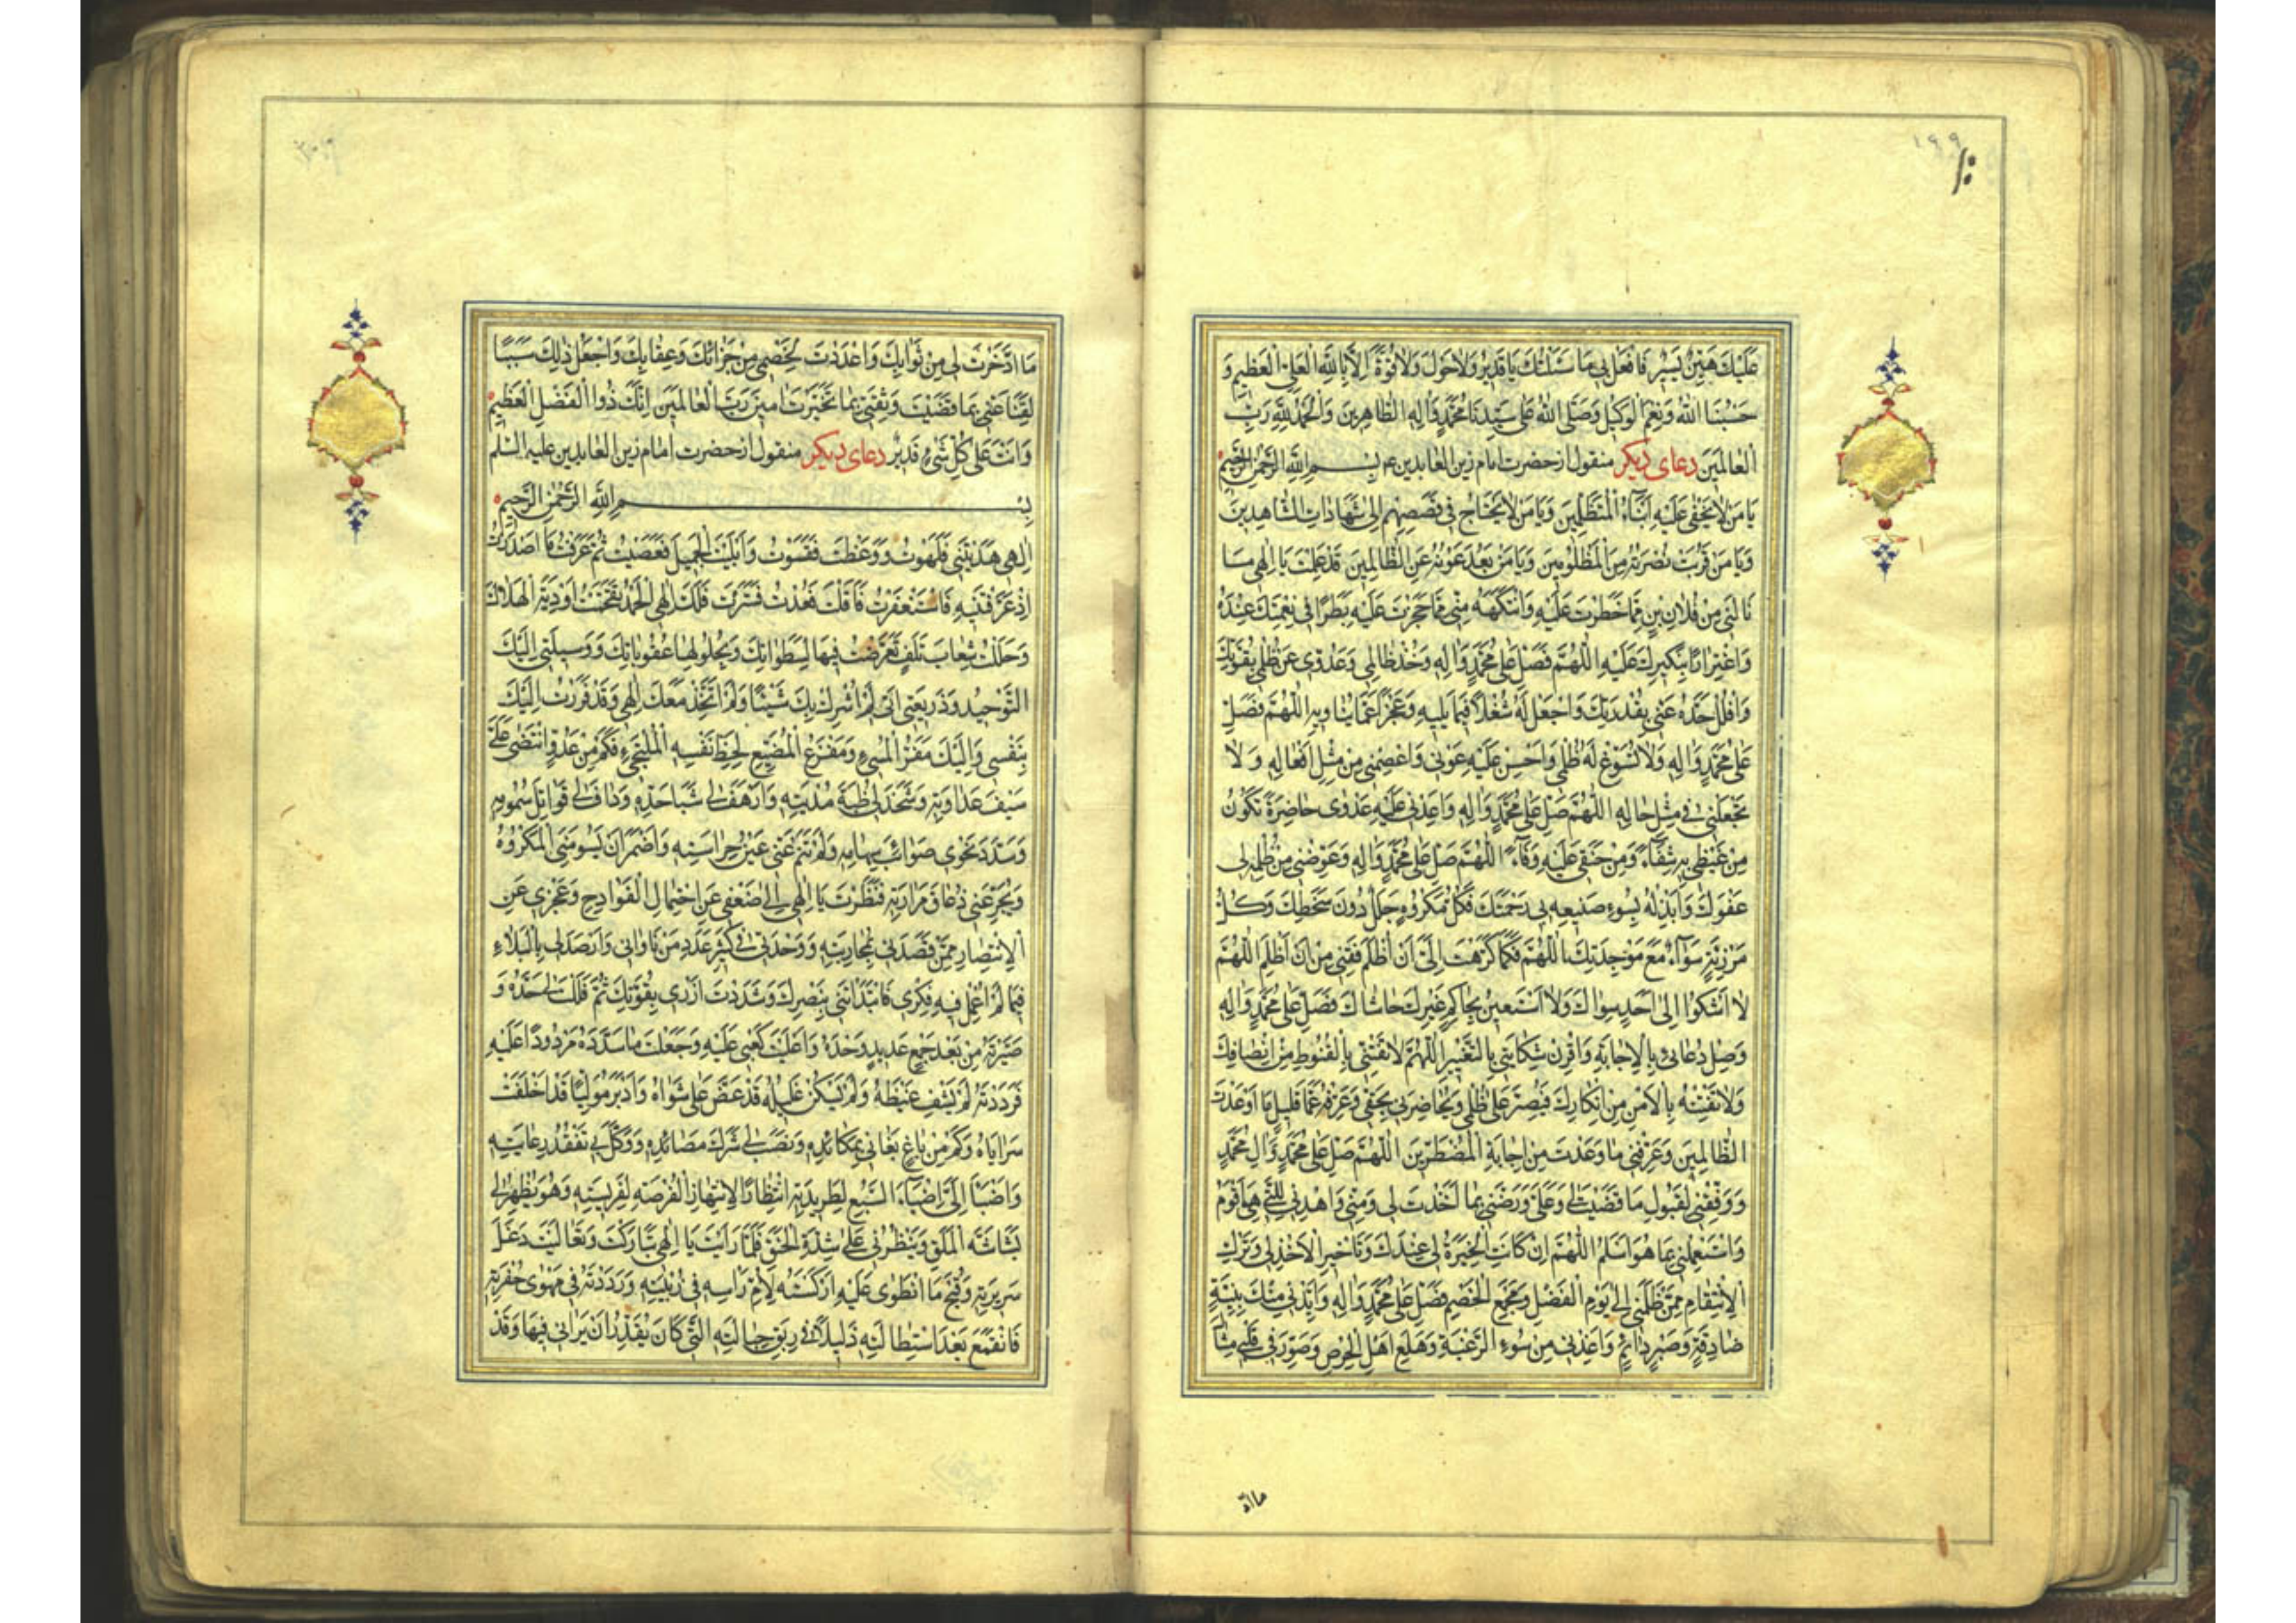 ١٩٩
عَلَيْكَ هَيِّنٌ يَسِيرٌ فَافْعَلْ بِي مَا سَئَلْتُكَ يَا قَدِيرُ وَلَا حَوْلَ وَلَا قُوَّةَ اِلَّا بِاللهِ الْعَلِيِّ الْعَظِيمِ وَ
حَسْبُنَا اللهُ وَنِعْمَ الْوَكِيلُ وَصَلَّى اللهُ عَلَى سَيِّدِنَا مُحَمَّدٍ وَالِهِ الطَّاهِرِينَ وَالْحَمْدُ لِلّهِ رَبِّ
الْعَالَمِينَ دعای دیکر منقول از حضرت امام زین العابدین ع بِسْمِ اللهِ الرَّحْمٰنِ الرَّحِيمِ
يَا مَنْ لَا يَخْفَى عَلَيْهِ اَنْبَاءُ الْمُتَظَلِّمِينَ وَيَا مَنْ لَا يَحْتَاجُ فِي قَصَصِهِمْ اِلَى شَهَادَاتِ الشَّاهِدِينَ
وَيَا مَنْ قَرُبَتْ نُصْرَتُهُ مِنَ الْمَظْلُومِينَ وَيَا مَنْ بَعُدَ عَوْنُهُ عَنِ الظَّالِمِينَ قَدْ عَلِمْتَ يَا اِلٰهِي مَا
نَالَنِي مِنْ فُلَانِ بْنِ مِمَّا حَظَرْتَ عَلَيْهِ وَانْتَهَكَهُ مِنِّي مِمَّا حَجَرْتَ عَلَيْهِ بَطَرًا فِي نِعْمَتِكَ عِنْدَهُ
وَاغْتِرَارًا بِنَكِيرِكَ عَلَيْهِ اللّٰهُمَّ فَصَلِّ عَلَى مُحَمَّدٍ وَالِهِ وَخُذْ ظَالِمِي وَعَدُوِّي عَنْ ظُلْمِي بِقُوَّتِكَ
وَافْلُلْ حَدَّهُ عَنِّي بِقُدْرَتِكَ وَاجْعَلْ لَهُ شُغْلًا فِيمَا يَلِيهِ وَعَجْزًا عَمَّا يُنَاوِيهِ اللّٰهُمَّ فَصَلِّ
عَلَى مُحَمَّدٍ وَالِهِ وَلَا تُسَوِّغْ لَهُ ظُلْمِي وَاَحْسِنْ عَلَيْهِ عَوْنِي وَاعْصِمْنِي مِنْ مِثْلِ اَفْعَالِهِ وَلَا
تَجْعَلْنِي فِي مِثْلِ حَالِهِ اللّٰهُمَّ صَلِّ عَلَى مُحَمَّدٍ وَالِهِ وَاَعِدْنِي عَلَيْهِ عَدْوَى حَاضِرَةً تَكُونُ
مِنْ غَيْظِي بِهِ شِفَاءً وَمِنْ حَنَقِي عَلَيْهِ وَفَاءً اللّٰهُمَّ صَلِّ عَلَى مُحَمَّدٍ وَالِهِ وَعَوِّضْنِي مِنْ ظُلْمِهِ لِي
عَفْوَكَ وَاَبْدِلْهُ بِسُوءِ صَنِيعِهِ بِي رَحْمَتَكَ فَكُلُّ مَكْرُوهٍ جَلَلٌ دُونَ سَخَطِكَ وَكُلُّ
مَرْزِئَةٍ سَوَاءٌ مَعَ مَوْجِدَتِكَ اللّٰهُمَّ فَكَمَا كَرَّهْتَ اِلَيَّ اَنْ اُظْلَمَ فَقِنِي مِنْ اَنْ اَظْلِمَ اللّٰهُمَّ
لَا اَشْكُوا اِلَى اَحَدٍ سِوَاكَ وَلَا اَسْتَعِينُ بِحَاكِمٍ غَيْرِكَ حَاشَاكَ فَصَلِّ عَلَى مُحَمَّدٍ وَالِهِ
وَصِلْ دُعَائِي بِالْاِجَابَةِ وَاقْرِنْ شِكَايَتِي بِالتَّغْيِيرِ اللّٰهُمَّ لَا تَفْتِنِّي بِالْقُنُوطِ مِنْ اِنْصَافِكَ
وَلَا تَفْتِنْهُ بِالْاَمْنِ مِنْ اِنْكَارِكَ فَيُصِرَّ عَلَى ظُلْمِي وَيُحَاضِرَنِي بِحَقِّي وَعَرِّفْهُ عَمَّا قَلِيلٍ مَا اَوْعَدْتَ
الظَّالِمِينَ وَعَرِّفْنِي مَا وَعَدْتَ مِنْ اِجَابَةِ الْمُضْطَرِّينَ اللّٰهُمَّ صَلِّ عَلَى مُحَمَّدٍ وَالِ مُحَمَّدٍ
وَوَفِّقْنِي لِقَبُولِ مَا قَضَيْتَ لِي وَعَلَيَّ وَرَضِّنِي بِمَا اَخَذْتَ لِي وَمِنِّي وَاهْدِنِي لِلَّتِي هِيَ اَقْوَمُ
وَاسْتَعْمِلْنِي بِمَا هُوَ اَسْلَمُ اللّٰهُمَّ اِنْ كَانَتِ الْخِيَرَةُ لِي عِنْدَكَ وَتَاْخِيرِ الْاَخْذِ لِي وَتَرْكِ
الْاِنْتِقَامِ مِمَّنْ ظَلَمَنِي اِلَى يَوْمِ الْفَصْلِ وَمَجْمَعِ الْخَصْمِ فَصَلِّ عَلَى مُحَمَّدٍ وَالِهِ وَاَيِّدْنِي مِنْكَ بِنِيَّةٍ
صَادِقَةٍ وَصَبْرٍ دَائِمٍ وَاَعِذْنِي مِنْ سُوءِ الرَّغْبَةِ وَهَلَعِ اَهْلِ الْحِرْصِ وَصَوِّرْ فِي قَلْبِي مِثَالَ
ما اد
مَا ادَّخَرْتَ لِي مِنْ ثَوَابِكَ وَاَعْدَدْتَ لِخَصْمِي مِنْ جَزَائِكَ وَعِقَابِكَ وَاجْعَلْ ذٰلِكَ سَبَبًا
لِقَنَاعَتِي بِمَا قَضَيْتَ وَثِقَتِي بِمَا تَخَيَّرْتَ امِينَ رَبَّ الْعَالَمِينَ اِنَّكَ ذُو الْفَضْلِ الْعَظِيمِ
وَاَنْتَ عَلَى كُلِّ شَيْءٍ قَدِيرٌ دعای دیکر منقول از حضرت امام زین العابدین علیه السلم
بِسْمِ اللهِ الرَّحْمٰنِ الرَّحِيمِ
اِلٰهِي هَدَيْتَنِي فَلَهَوْتُ وَوَعَظْتَ فَقَسَوْتُ وَاَبْلَيْتَ الْجَمِيلَ فَعَصَيْتُ ثُمَّ عَرَفْتُ مَا اَصْدَرْتَ
اِذْ عَرَّفْتَنِيهِ فَاسْتَغْفَرْتُ فَاَقَلْتَ فَعُدْتُ فَسَتَرْتَ فَلَكَ اِلٰهِي الْحَمْدُ تَقَحَّمْتُ اَوْدِيَةَ الْهَلَاكِ
وَحَلَلْتُ شِعَابَ تَلَفٍ تَعَرَّضْتُ فِيهَا لِسَطَوَاتِكَ وَبِحُلُولِهَا عُقُوبَاتِكَ وَوَسِيلَتِي اِلَيْكَ
التَّوْحِيدُ وَذَرِيعَتِي اَنِّي لَمْ اُشْرِكْ بِكَ شَيْئًا وَلَمْ اَتَّخِذْ مَعَكَ اِلٰهِي وَقَدْ فَرَرْتُ اِلَيْكَ
بِنَفْسِي وَاِلَيْكَ مَفَرُّ الْمُسِيءِ وَمَفْزَعُ الْمُضَيِّعِ لِحَظِّ نَفْسِهِ الْمُلْتَجِيءِ فَكَمْ مِنْ عَدُوٍّ انْتَضَى عَلَيَّ
سَيْفَ عَدَاوَتِهِ وَشَحَذَ لِي ظُبَةَ مُدْيَتِهِ وَاَرْهَفَ لِي شَبَا حَدِّهِ وَدَافَ لِي قَوَاتِلَ سُمُومِهِ
وَسَدَّدَ نَحْوِي صَوَائِبَ سِهَامِهِ وَلَمْ تَنَمْ عَنِّي عَيْنُ حِرَاسَتِهِ وَاَضْمَرَ اَنْ يَسُومَنِي الْمَكْرُوهَ
وَيُجَرِّعَنِي ذُعَاقَ مَرَارَتِهِ فَنَظَرْتَ يَا اِلٰهِي اِلَى ضَعْفِي عَنِ احْتِمَالِ الْفَوَادِحِ وَعَجْزِي عَنِ
الْاِنْتِصَارِ مِمَّنْ قَصَدَنِي بِمُحَارَبَتِهِ وَوَحْدَتِي فِي كَثِيرِ عَدَدِ مَنْ نَاوَانِي وَاَرْصَدَ لِي بِالْبَلَاءِ
فِيمَا لَمْ اُعْمِلْ فِيهِ فِكْرِي فَابْتَدَاْتَنِي بِنَصْرِكَ وَشَدَدْتَ اَزْرِي بِقُوَّتِكَ ثُمَّ فَلَلْتَ لِي حَدَّهُ وَ
صَيَّرْتَهُ مِنْ بَعْدِ جَمْعٍ عَدِيدٍ وَحْدَهُ وَاَعْلَيْتَ كَعْبِي عَلَيْهِ وَجَعَلْتَ مَا سَدَّدَهُ مَرْدُودًا عَلَيْهِ
فَرَدَدْتَهُ لَمْ يَشْفِ غَيْظَهُ وَلَمْ يَسْكُنْ غَلِيلُهُ قَدْ عَضَّ عَلَى شَوَاهُ وَاَدْبَرَ مُوَلِّيًا قَدْ اَخْلَفَتْ
سَرَايَاهُ وَكَمْ مِنْ بَاغٍ بَغَانِي بِمَكَائِدِهِ وَنَصَبَ لِي شَرَكَ مَصَائِدِهِ وَوَكَّلَ بِي تَفَقُّدَ رِعَايَتِهِ
وَاَضْبَاَ اِلَيَّ اِضْبَاءَ السَّبُعِ لِطَرِيدَتِهِ انْتِظَارًا لِانْتِهَازِ الْفُرْصَةِ لِفَرِيسَتِهِ وَهُوَ يُظْهِرُ لِي
بَشَاشَةَ الْمَلَقِ وَيَنْظُرُنِي عَلَى شِدَّةِ الْحَنَقِ فَلَمَّا رَاَيْتَ يَا اِلٰهِي تَبَارَكْتَ وَتَعَالَيْتَ دَغَلَ
سَرِيرَتِهِ وَقُبْحَ مَا انْطَوَى عَلَيْهِ اَرْكَسْتَهُ لِاُمِّ رَاْسِهِ فِي زُبْيَتِهِ وَرَدَدْتَهُ فِي مَهْوَى حُفْرَتِهِ
فَانْقَمَعَ بَعْدَ اسْتِطَالَتِهِ ذَلِيلًا فِي رِبَقِ حِبَالَتِهِ الَّتِي كَانَ يُقَدِّرُ اَنْ يَرَانِي فِيهَا وَقَدْ